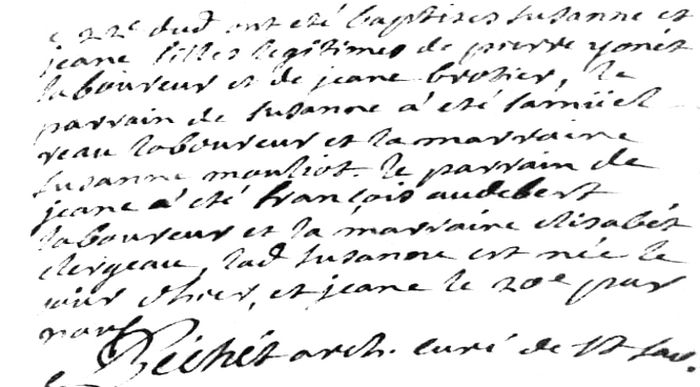 e 22e dud ont été baptizes susanne et
jeane filles legitimes de pierre yonét
laboureur et de jeane brotier, le
parrain de susanne a été samüel
reau laboureur et la marraine
susanne mouliot. le parrain de
jeane a été françois audebert
laboureur et la marraine elisabét
clergeau, lad susanne est née le
jour d'hier, et jeane le 20e par
nous
Péchét arch. curé de St Sau.